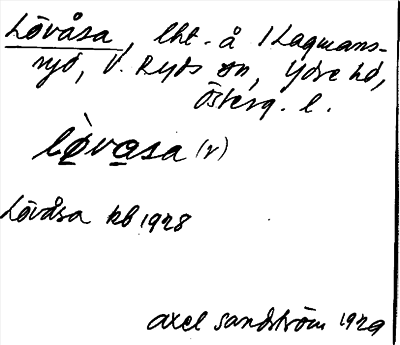 Lövåsa, lht. å 1 Lagmans-
ryd, V. Ryds sn, Ydre hd,
Österg. l.
lö̀vasa (r)
Lövåsa kb 1928
Axel Sandström 1929